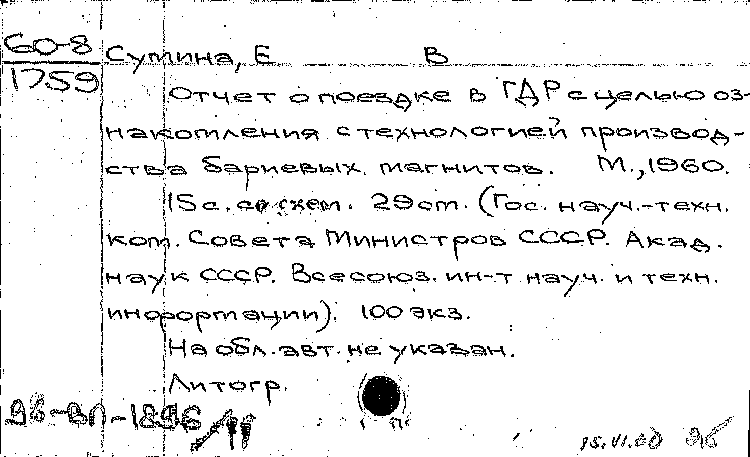 60-8
1759
Сутина, Е В
Отчет о поездке в ГДР с целью оз-
накомления с технологией производ-
ства бариевых магнитов. М., 1960.
15 с. со схем. 29 см. (Гос. науч.-техн.
ком. Совета Министров СССР. Акад.
наук СССР. Всесоюз. ин-т науч. и техн.
информации). 100 экз.
На обл. авт. не указан.
Литогр.
96-ВЛ-1896/11
15.VI.60